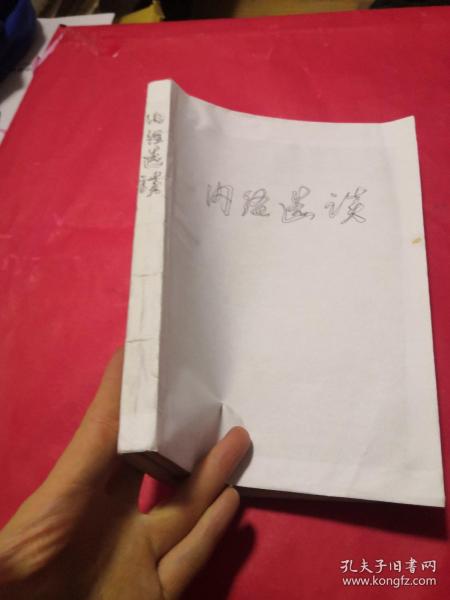 内经选读
内经选读
孔夫子旧书网
www.kongfz.com